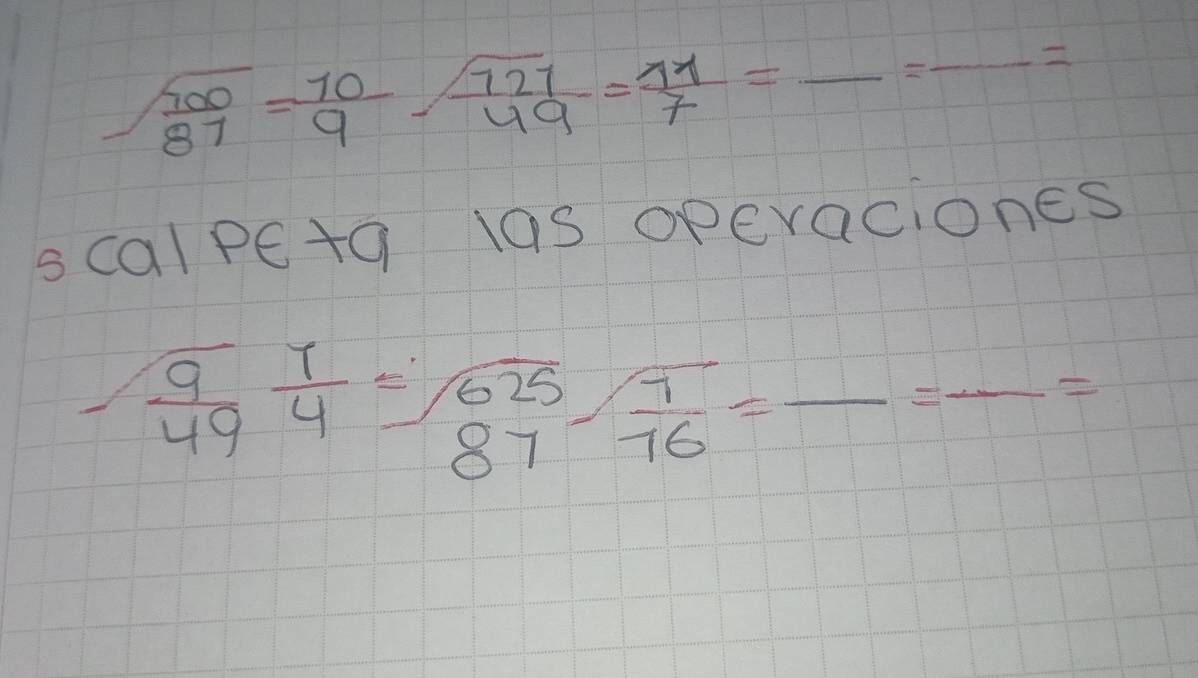 √100/81 = 10/9 √121/49 = 11/7 = — = — =
s calpeta las operaciones
√9/49 1/4 = √625/81 √1/16 = — = — =